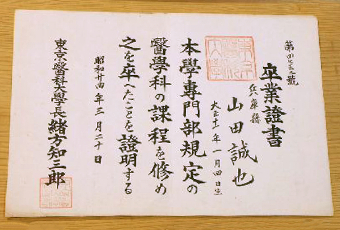 卒業證書
兵庫縣
山田誠也
大正十一年一月四日生
本學專門部規定の
醫學科の課程を修め
之を卒へたことを證明する
昭和廿四年三月二十日
東京醫科大學長緒方知三郎